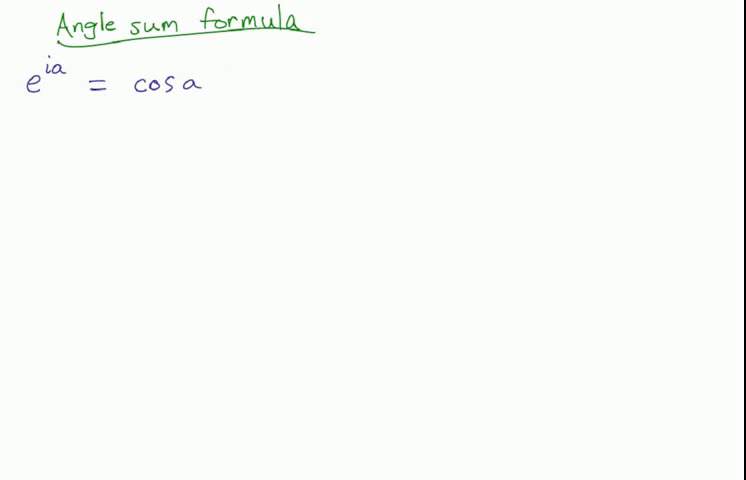 Angle sum formula
e^{ia} = cos a